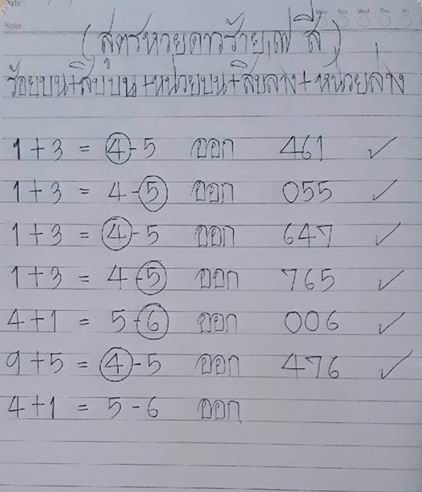 Note
Mon Tue Wed Thu Fri
(สูตรหวยดาวร้าย,เฟ สี)
ร้อยบน+สิบบน+หน่วยบน+สิบล่าง+หน่วยล่าง
1+3 = 4-5 ออก 461 ✓
1+3 = 4-5 ออก 055 ✓
1+3 = 4-5 ออก 647 ✓
1+3 = 4-5 ออก 765 ✓
4+1 = 5-6 ออก 006 ✓
9+5 = 4-5 ออก 476 ✓
4+1 = 5-6 ออก